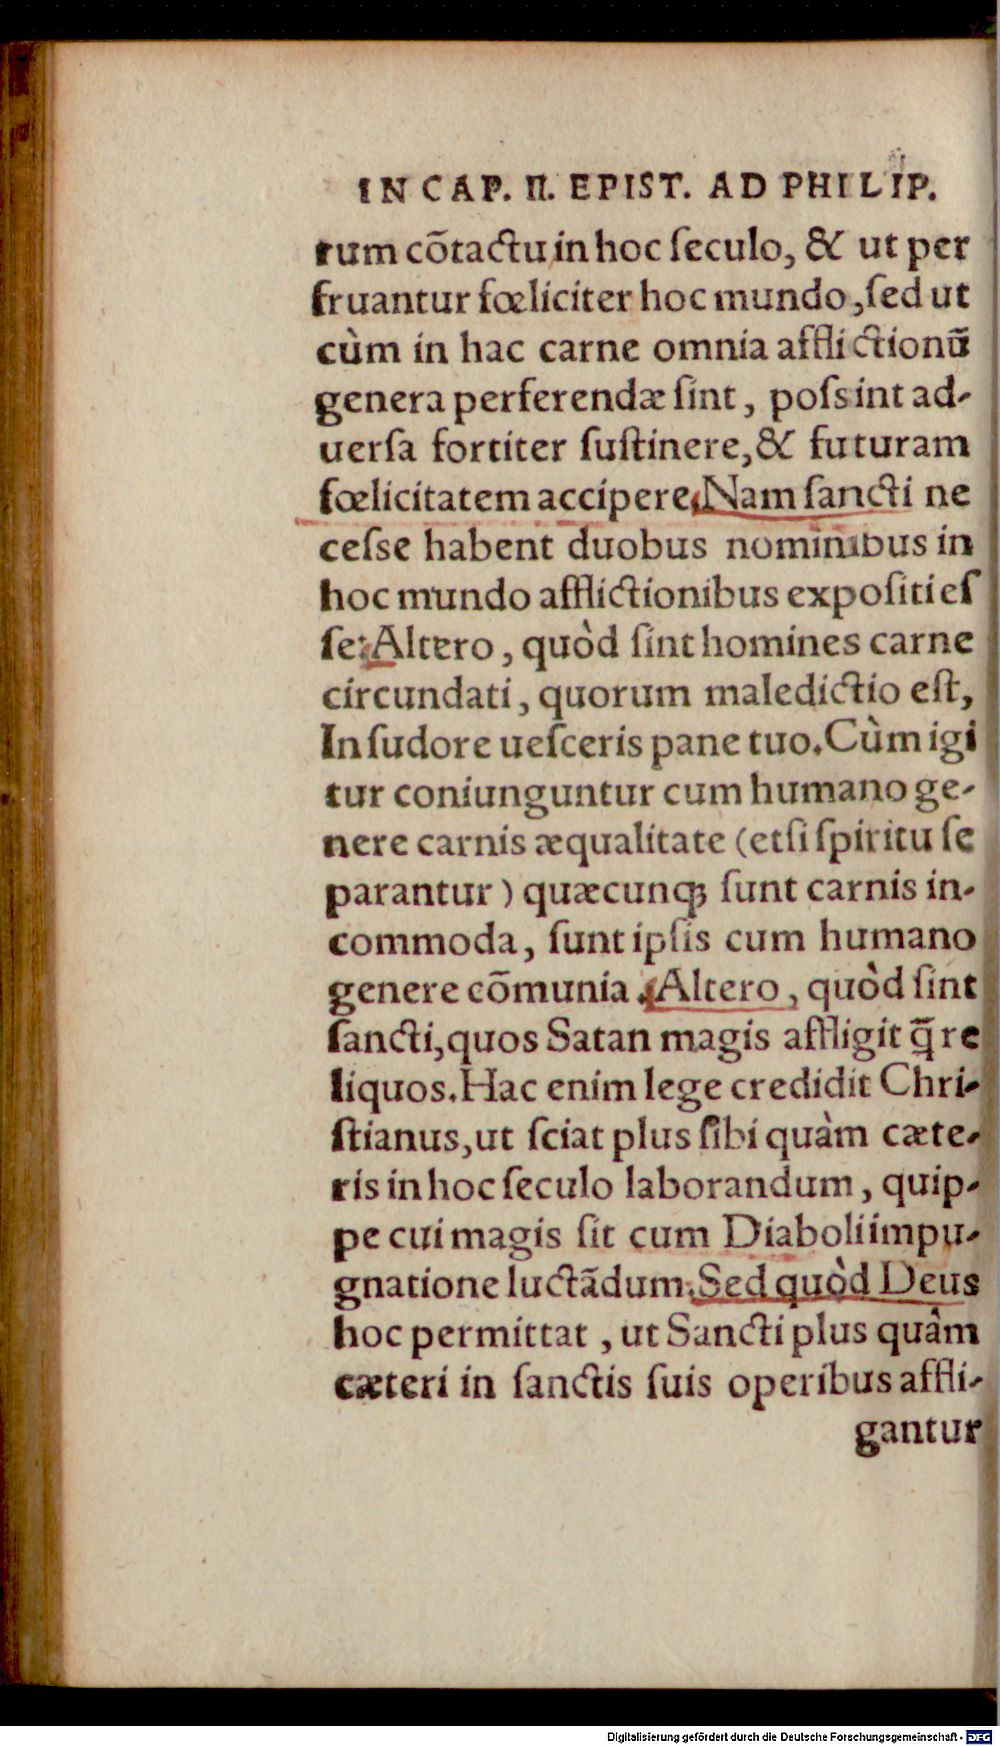 IN CAP. II. EPIST. AD PHILIP.
rum cõtactu in hoc ſeculo, & ut per
fruantur fœliciter hoc mundo, ſed ut
cùm in hac carne omnia afflictionũ
genera perferendæ ſint, poſsint ad-
uerſa fortiter ſuſtinere, & futuram
fœlicitatem accipere. Nam ſancti ne
ceſse habent duobus nominibus in
hoc mundo afflictionibus expoſiti eſ
ſe: Altero, quòd ſint homines carne
circundati, quorum maledictio eſt,
In ſudore ueſceris pane tuo. Cùm igi
tur coniunguntur cum humano ge-
nere carnis æqualitate (etſi ſpiritu ſe
parantur) quæcunq; ſunt carnis in-
commoda, ſunt ipſis cum humano
genere cõmunia. Altero, quòd ſint
ſancti, quos Satan magis affligit q̃ re
liquos. Hac enim lege credidit Chri-
ſtianus, ut ſciat plus ſibi quàm cæte-
ris in hoc ſeculo laborandum, quip-
pe cui magis ſit cum Diaboli impu-
gnatione luctãdum. Sed quòd Deus
hoc permittat, ut Sancti plus quàm
cæteri in ſanctis ſuis operibus affli-
gantur
Digitalisierung gefördert durch die Deutsche Forschungsgemeinschaft - DFG